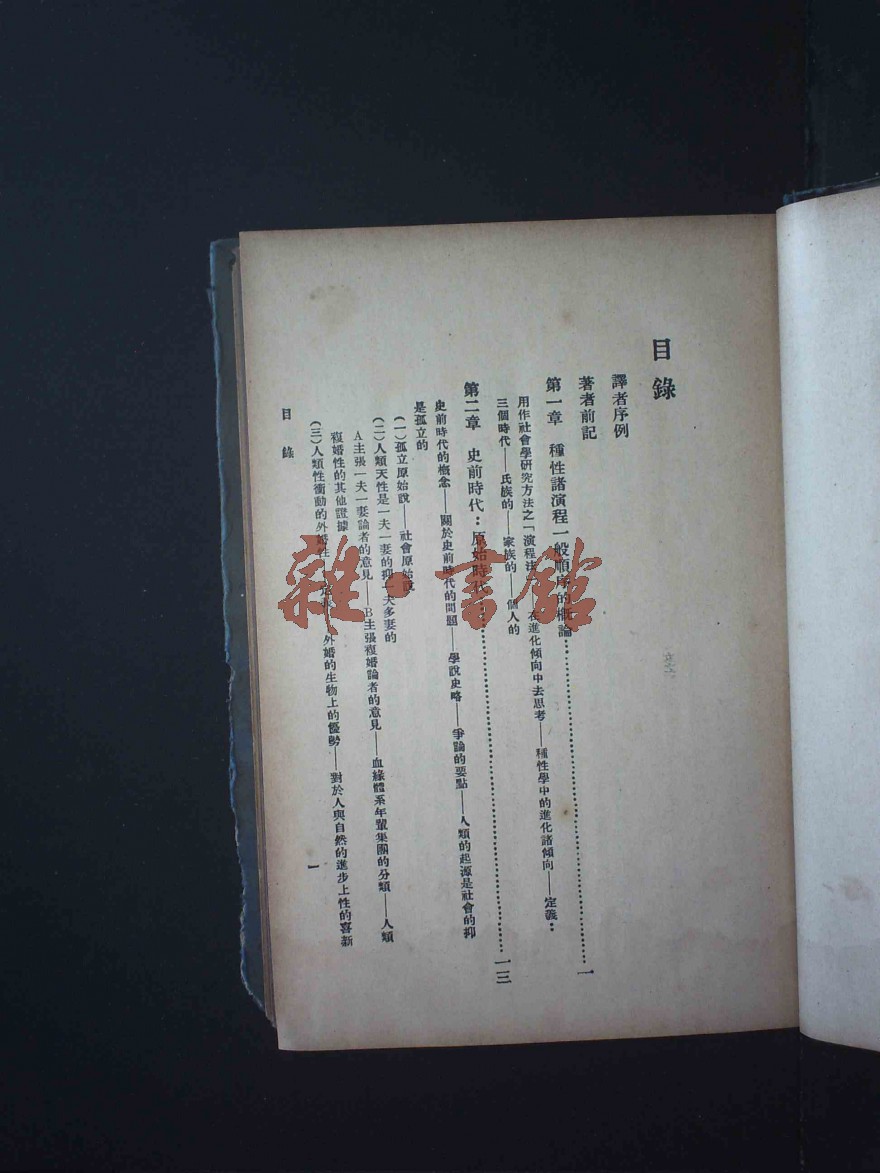 目錄
譯者序例
著者前記
第一章　種性諸演程一般順序的概論……一
用作社會學研究方法之「演程法」——在進化傾向中去思考——種性學中的進化諸傾向——定義：
三個時代——氏族的——家族的——個人的
第二章　史前時代：原始時代……一三
史前時代的概念——關於史前時代的問題——學說史略——爭論的要點——人類的起源是社會的抑
是孤立的
（一）孤立原始說——社會原始說
（二）人類天性是一夫一妻的抑一夫多妻的
A主張一夫一妻論者的意見——B主張複婚論者的意見——血緣體系年輩集團的分類——人類
複婚性的其他證據
（三）人類性衝動的外婚性 外婚的生物上的優勢——對於人與自然的進步上性的喜新
目錄
一
雜·書館